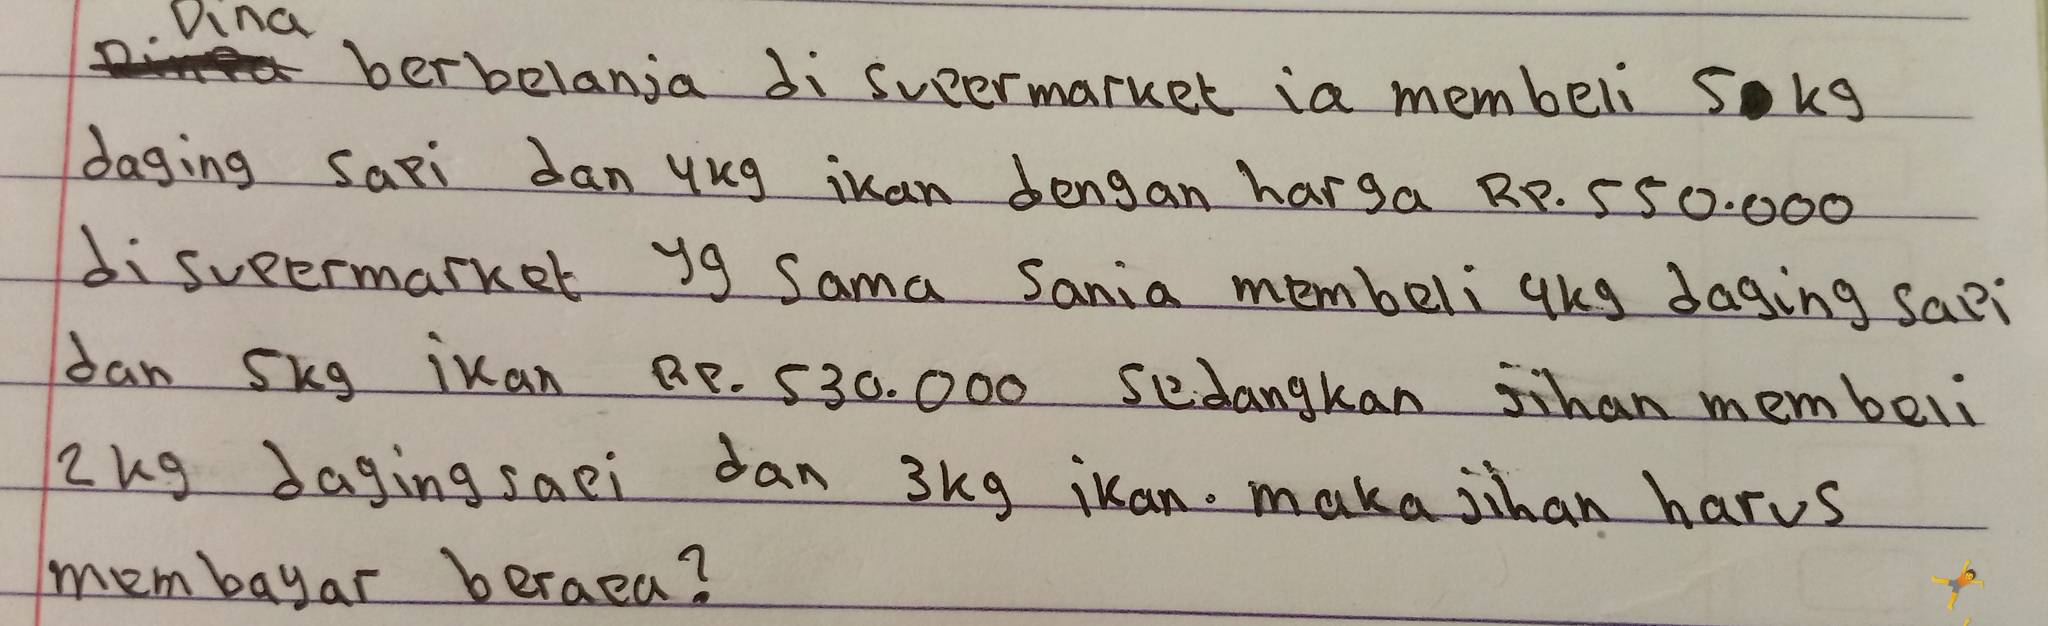 Dina
berbelanja di supermarket ia membeli 5 kg
daging sapi dan 4kg ikan dengan harga Rp. 550.000
di supermarket yg sama sania membeli 4kg daging sapi
dan 5kg ikan Rp. 530.000 sedangkan jihan membeli
2kg daging sapi dan 3kg ikan. maka jihan harus
membayar berapa?